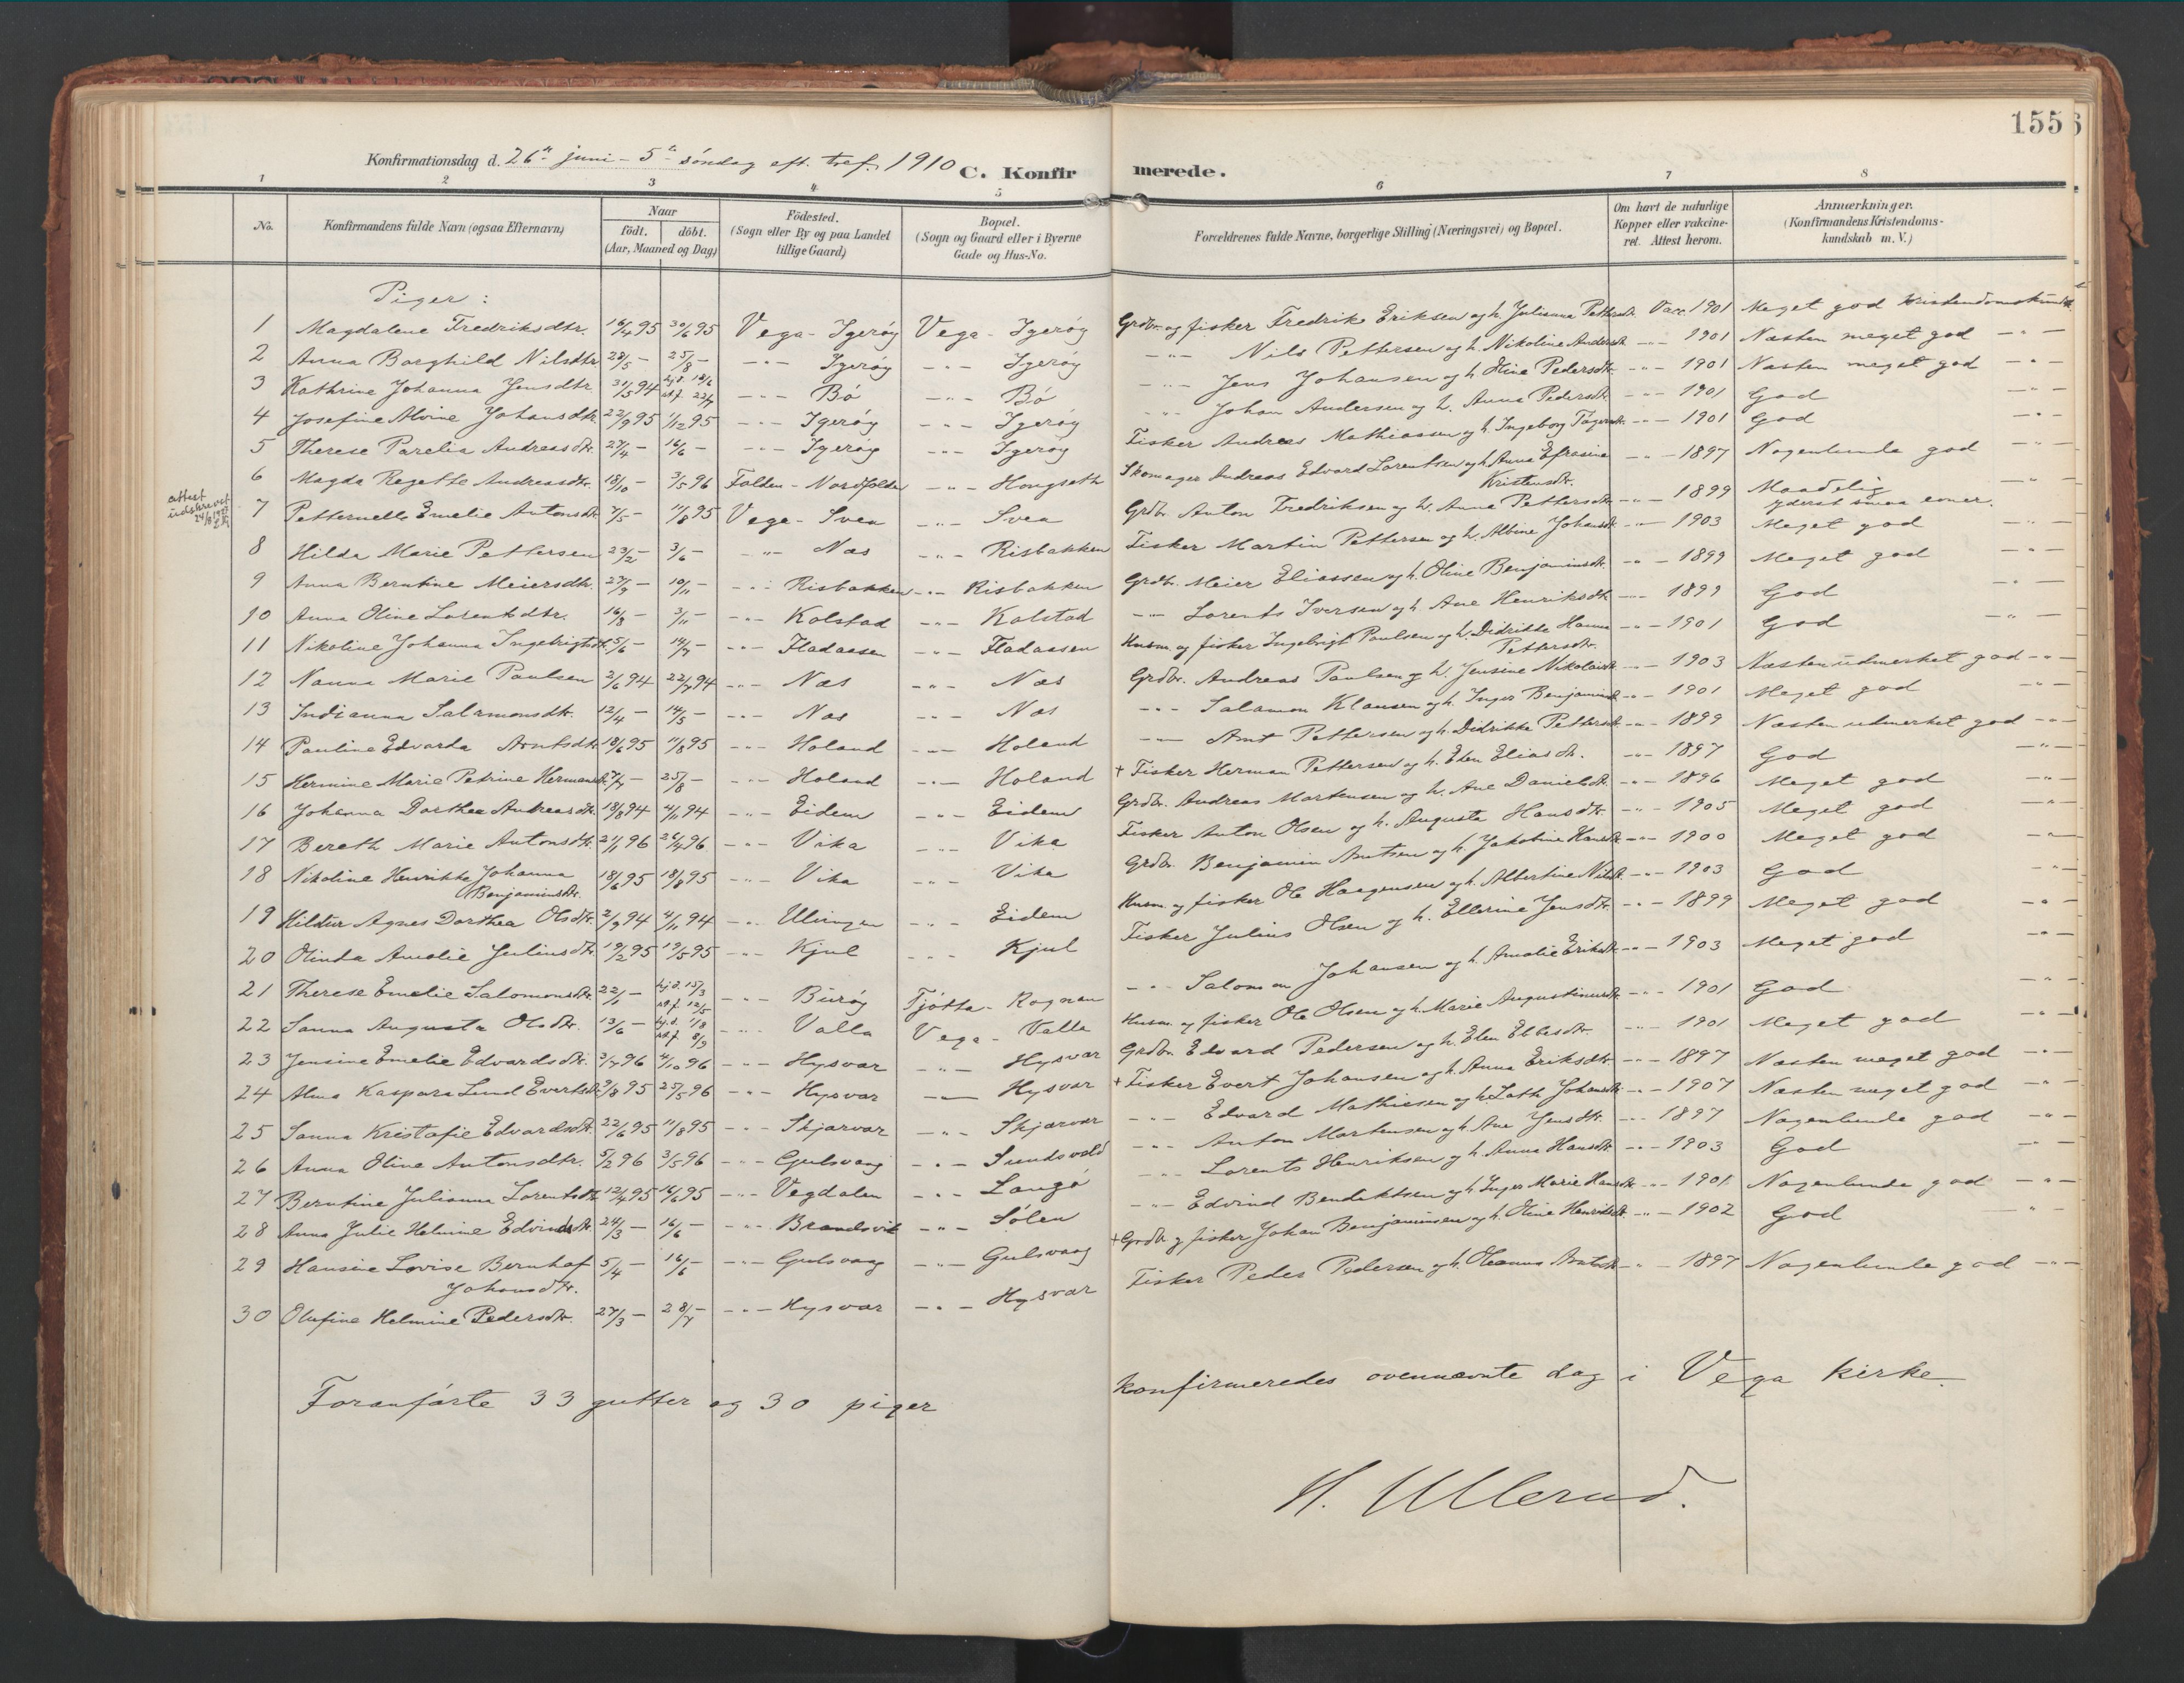 155
Konfirmationsdag d. 26de juni - 5te søndag eft. tref. 1910 C. Konfirmerede.
1 2 3 4 5 6 7 8
No. Konfirmandens fulde Navn (ogsaa Efternavn) Naar født. døbt. (Aar, Maaned og Dag) Fødested. (Sogn eller By og paa Landet tillige Gaard) Bopæl. (Sogn og Gaard eller i Byerne Gade og Hus-No. Forældrenes fulde Navne, borgerlige Stilling (Næringsvei) og Bopæl. Om havt de naturlige Kopper eller vakcineret. Attest herom. Anmærkninger. (Konfirmandens Kristendomskundskab m. V.)
Piger:
1 Magdalene Fredriksdtr. 16/4 95 30/6 95 Vega - Igerøy Vega - Igerøy Grdbr. og fisker Fredrik Eriksen og h. Julianna Pettersdtr. Vacc. 1901 Meget god kristendomskundsk.
2 Anna Borghild Nilsdtr. 28/5 - 25/8 - -"- Igerøy -"- Igerøy -"- Nils Pettersen og h. Nikoline Andersdtr. -"- 1901 Næsten meget god -"-
3 Kathrine Johanna Jensdtr. 31/5 94 hj.d. 18/6 st.f. 22/7 -"- Bø -"- Bø -"- Jens Johansen og h. Oline Pedersdtr. -"- 1901 Næsten meget god -"-
4 Josefine Alvine Johansdtr. 22/9 95 1/12 95 -"- Igerøy -"- Igerøy -"- Johan Andersen og h. Anna Pedersdtr. -"- 1901 God -"-
5 Therese Parelia Andreasdtr. 27/4 - 16/6 - -"- Igerøy -"- Igerøy Fisker Andreas Mathiassen og h. Ingeborg -"- 1901 God -"-
6 Magda Regette Andreasdtr. 18/10 - 3/5 96 Folden - Nordfolden -"- Hongseth Skomager Andreas Edvard Lorentsen og h. Anna Efrasine Kristensdtr. -"- 1897 Nogenlunde god -"-
attest udskrevet
7 Petternelle Emelie Antonsdtr. 7/5 - 11/8 95 Vega - Svea -"- Svea Grdbr. Anton Fredriksen og h. Anna Pettersdtr. -"- 1899 Maadelig -"-
yderst smaa evner.
8 Hilda Marie Pettersen 23/2 - 3/6 - -"- Næs -"- Risbakken Fisker Martin Pettersen og h. Albine Johansdtr. -"- 1903 Meget god -"-
9 Anna Berntine Meiersdtr. 27/9 - 10/11 - -"- Risbakken -"- Risbakken Grdbr. Meier Eliassen og h. Oline Benjaminsdtr. -"- 1899 Meget god -"-
10 Anna Oline Lorentsdtr. 16/8 - 3/11 - -"- Kolstad -"- Kolstad -"- Lorents Iversen og h. Ane Henriksdtr. -"- 1899 God -"-
11 Nikoline Johanna Ingebrigtsdtr. 5/6 - 14/7 - -"- Fladaasen -"- Fladaasen Husm. og fisker Ingebrigt Paulsen og h. Didrikke Hanna Pettersdtr. -"- 1901 God -"-
12 Nanna Marie Paulsen 2/6 94 22/7 94 -"- Næs -"- Næs Grdbr. Andreas Paulsen og h. Jensine Nikolaisdtr. -"- 1903 Næsten udmerket god -"-
13 Indianna Salamonsdtr. 12/4 - 14/5 - -"- Næs -"- Næs -"- Salamon Klausen og h. Inger Benjaminsdtr. -"- 1901 Meget god -"-
14 Pauline Edvarda Arntsdtr. 18/6 95 11/8 95 -"- Holand -"- Holand -"- Arnt Pettersen og h. Didrikke Pettersdtr. -"- 1899 Næsten udmerket god -"-
15 Hermine Marie Petrine Hermansdtr. 7/7 - 25/8 - -"- Holand -"- Holand + Fisker Herman Pettersen og h. Elen Eliasdtr. -"- 1897 God -"-
16 Johanna Dorthea Andreasdtr. 18/8 94 4/11 94 -"- Eidem -"- Eidem Grdbr. Andreas Mortensen og h. Ane Danielsdtr. -"- 1896 Meget god -"-
17 Bereth Marie Antonsdtr. 21/1 96 26/4 96 -"- Vika -"- Vika Fisker Anton Olsen og h. Augusta Hansdtr. -"- 1905 Meget god -"-
18 Nikoline Henrikke Johanna Benjaminsdtr. 18/6 95 18/8 95 -"- Vika -"- Vika Grdbr. Benjamin Arntsen og h. Jakobine Hansdtr. -"- 1900 Meget god -"-
19 Hildur Agnes Dorthea Olsdtr. 2/9 94 4/11 94 -"- Ulingen -"- Eidem Husm. og fisker Ole Haagensen og h. Albertine Nilsdtr. -"- 1903 God -"-
20 Olinda Amalie Juliusdtr. 19/2 95 19/5 95 -"- Kjul -"- Kjul Fisker Julius Olsen og h. Ellerine Jensdtr. -"- 1899 Meget god -"-
21 Therese Emelie Salomonsdtr. 22/1 - hj.d. 15/3 st.f. 12/5 -"- Burøy Tjøtta - Rognan -"- Salomon Johansen og h. Amalie Eriksdtr. -"- 1903 Meget god -"-
22 Sanna Augusta Olsdtr. 13/6 - hj.d. 1/8 st.f. 8/9 -"- Valla Vega - Valla Husm. og fisker Ole Olsen og h. Marie Augustinusdtr. -"- 1901 God -"-
23 Jensine Emelie Edvardsdtr. 3/7 96 4/10 96 -"- Hysvær -"- Hysvær Grdbr. Edvard Pedersen og h. Elen Ellesdtr. -"- 1901 Meget god -"-
24 Alma Kaspara Lund Evertsdtr. 9/8 95 25/5 96 -"- Hysvær -"- Hysvær + Fisker Evert Johansen og h. Anna Eriksdtr. -"- 1897 Næsten meget god -"-
25 Sanna Kristofie Edvardsdtr. 22/6 95 11/8 95 -"- Skjærvær -"- Skjærvær -"- Edvard Mathiesen og h. Lath Johansdtr. -"- 1907 Næsten meget god -"-
26 Anna Oline Antonsdtr. 5/2 96 3/5 96 -"- Gulsvaag -"- Sundsvold -"- Anton Mortensen og h. Ane Jensdtr. -"- 1897 Nogenlunde god -"-
27 Berntine Julianna Lorentsdtr. 12/4 95 16/6 95 -"- Vegdalen -"- Langø -"- Lorents Henriksen og h. Anna Hansdtr. -"- 1903 God -"-
28 Anna Julie Helmine Edvindsdtr. 24/3 - 16/6 - -"- Brandsvik -"- Sølen -"- Edvind Bendiktsen og h. Inger Marie Hansdtr. -"- 1901 Nogenlunde god -"-
29 Hansine Lovise Bernhof Johansdtr. 5/4 - 16/6 - -"- Gulsvaag -"- Gulsvaag + Grdbr. og fisker Johan Benjaminsen og h. Oline Henriksdtr. -"- 1902 God -"-
30 Olufine Helmine Pedersdtr. 27/3 - 28/7 - -"- Hysvær -"- Hysvær Fisker Peder Pedersen og h. Oleanna Arntsdtr. -"- 1897 Nogenlunde god -"-
Foranførte 33 gutter og 30 piger konfirmeredes ovennævnte dag i Vega kirke.
H. Ullerud.